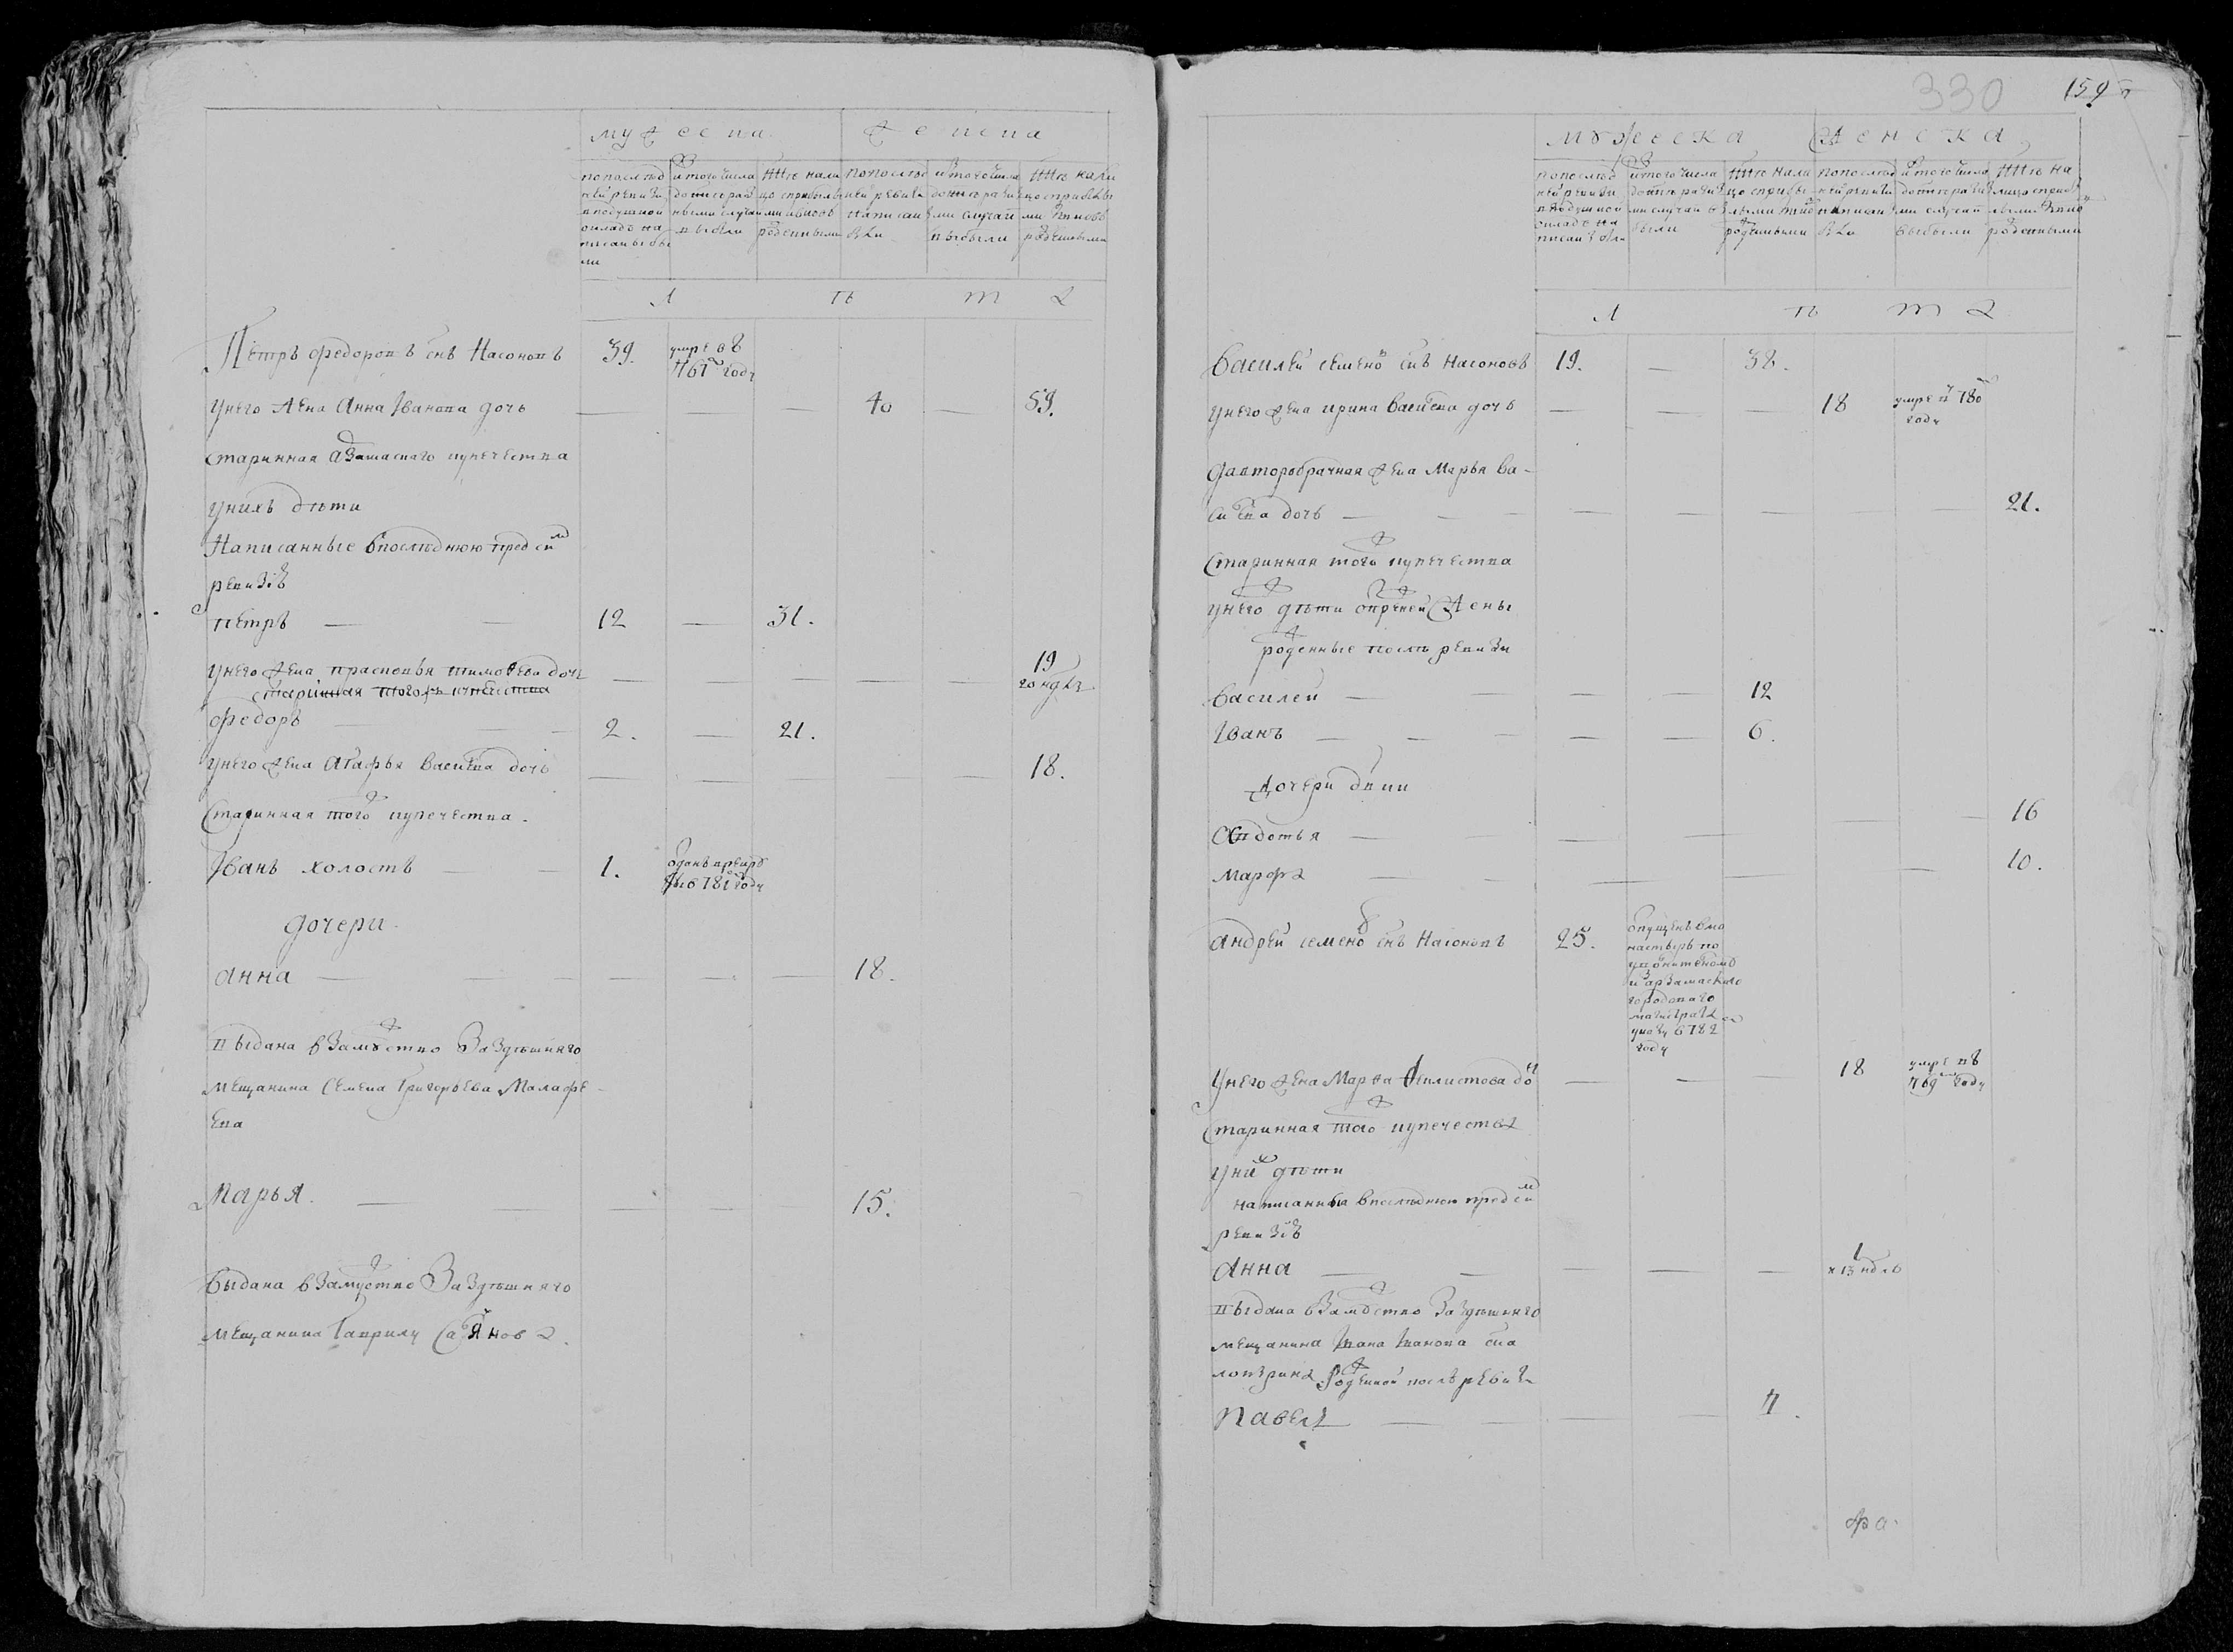 мужеска женска
по последней ревизии в подушной окладъ написаны были
ис того числа до ныне разными случаи выбыли
ныне налицо с прибылыми и вновь рожденными
по последней ревизии написаны
ис того числа до ныне разными случаи выбыли
ныне налицо с прибылыми и вновь рожденными
л ѣ т а
Петръ федоровъ снъ Насоновъ 39. умре въ 767 году
унего жена Анна Іванова дочь — — — 40 — 59.
старинная арзамаскаго купечества
унихъ дѣти
Написанные впоследнюю пред сим
ревизiю
петръ — — 12 — 31.
унего жена прасковья тимофева дочь — — — — — 19
20 нде
старинная того купечества
федоръ — — 2. — 21.
унего жена Агафья василева дочь — — — — — 18.
Старинная того купечества.
Іванъ холостъ — — 1. отданъ в рекруты в 781 году
дочери.
анна — — — — — — 18.
выдана взамужство за здешняго
мещанина Семена Григорьева Малафе-
ева
Марья. — — — — — 15.
выдана взамужство За здешняго
мещанина Гаврилу
330 159
мужеска женска
по последней ревизии в подушной окладъ написаны были
ис того числа до ныне разными случаи выбыли
ныне налицо с прибылыми и вновь рожденными
по последней ревизии написаны
ис того числа до ныне разными случаи выбыли
ныне налицо с прибылыми и вновь рожденными
л ѣ т а
Василей семеновъ снъ насоновъ 19. — 38.
унего жена ирина василева дочь — — — 18 умре в 780
году
Да второбрачная жена Марья ва-
силева дочь — — — — — — — 21.
Старинная того купечества
унего дѣти от первой жены
рожденные после ревизи
василей — — — — 12
Іванъ — — — — — 6.
Дочери двии
Авдотья — — — — — — 16
марфа — — — — — — 10.
андрей семеновъ снъ Насоновъ 25. отпущенъ в монастырь по
арзамаскаго
городоваго
магистрата
указу в 782
году
унего жена Марфа дочь — — — 18 умре въ
769 году
Старинная того купечества
уних дѣти
написанныя впоследнюю пред сим
ревизiю
Анна — — — — — 1
и 13 нде
выдана взамужство за здешняго
мещанина Івана Іванова сна
рожденной после ревизи
Павелъ — — — — 4.